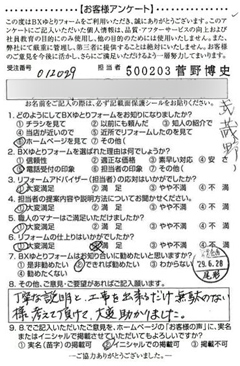 【お客様アンケート】
この度はBXゆとりフォームをご利用いただき、誠にありがとうございます。
受注番号 012029 担当者 500203 菅野博史
お名前をご記入の際は、必ず記載面保護シールをお貼りください。
1. どのようにしてBXゆとりフォームをお知りになりましたか?
①チラシを見て ②以前にも頼んだ ③知人の紹介で
④当店が近いので ⑤近所でリフォームしたのを見て
⑥ホームページを見て ⑦その他(
2. BXゆとりフォームを選ばれた理由は何ですか?
①信頼性 ②適正な価格 ③素早い対応 ④安さ
⑤電話受付の印象 ⑥担当者の印象 ⑦その他(
3. リフォームアドバイザー(担当者)の応対はいかがでしたか?
①大変満足 ②満足 ③やや不満 ④不満
4. 担当者の提案内容や説明方法についてお聞かせください。
①大変満足 ②満足 ③やや不満 ④不満
5. 職人のマナーはご満足いただけましたか?
①大変満足 ②満足 ③やや不満 ④不満
6. リフォームの仕上りはいかがでしたか?
①大変満足 ②満足 ③やや不満 ④不満
7. BXゆとりフォームはお知り合いに勧めたいと思いますか?
①是非勧めたい ②できれば勧めたい ③わからない
④勧めたくない
29.6.28
8. その他、ご意見・ご要望があればご記入願います。
丁寧な説明と、工事を出来るだけ無駄のない
様 考えて頂けて、大変助かりました。
9. 8.でご記入いただいたご意見を、ホームページの「お客様の声」に、実名
またはイニシャルで掲載させていただいてもよろしいですか?
①実名(苗字)の掲載可 ②イニシャルでの掲載可 ③掲載不可
―ご協力ありがとうございました。―